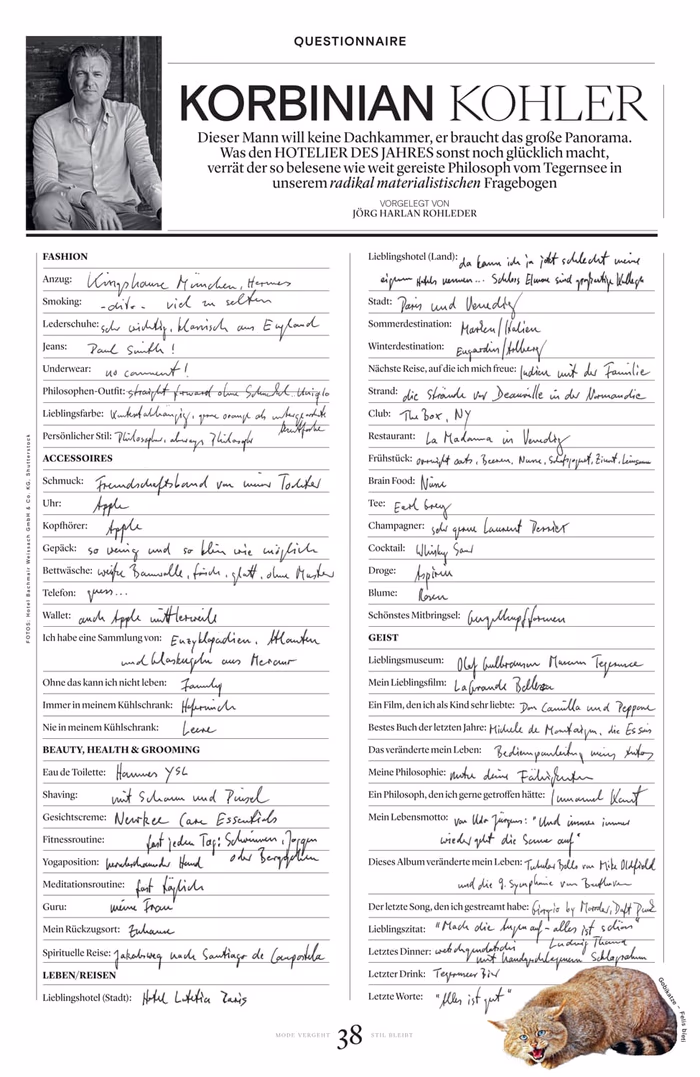 QUESTIONNAIRE
KORBINIAN KOHLER
Dieser Mann will keine Dachkammer, er braucht das große Panorama.
Was den HOTELIER DES JAHRES sonst noch glücklich macht,
verrät der so belesene wie weit gereiste Philosoph vom Tegernsee in
unserem radikal materialistischen Fragebogen
VORGELEGT VON
JÖRG HARLAN ROHLEDER
FOTOS: Hotel Bachmair Weissach GmbH & Co. KG, Shutterstock
FASHION
Anzug: Kingshouse München, Hermes
Smoking: -dito- viel zu selten
Lederschuhe: sehr wichtig, klassisch aus England
Jeans: Paul Smith!
Underwear: no comment!
Philosophen-Outfit: straight forward ohne Uniqlo
Lieblingsfarbe: gerne orange als
Persönlicher Stil: Philosophy, always Philosophy
ACCESSOIRES
Schmuck: Freundschaftsband von meiner Tochter
Uhr: Apple
Kopfhörer: Apple
Gepäck: so wenig und so klein wie möglich
Bettwäsche: weiße Baumwolle, frisch, glatt, ohne Muster
Telefon: guess...
Wallet: auch Apple mittlerweile
Ich habe eine Sammlung von: Enzyklopädien, Atlanten
und Glaskugeln aus Murano
Ohne das kann ich nicht leben: Family
Immer in meinem Kühlschrank: Hafermilch
Nie in meinem Kühlschrank: Leere
BEAUTY, HEALTH & GROOMING
Eau de Toilette: YSL
Shaving: mit Schaum und Pinsel
Gesichtscreme: Care Essentials
Fitnessroutine: fast jeden Tag: Schwimmen, Joggen
oder Berggehen
Yogaposition: herabschauender Hund
Meditationsroutine: fast täglich
Guru: meine Frau
Mein Rückzugsort: Zuhause
Spirituelle Reise: Jakobsweg nach Santiago de Compostela
LEBEN/REISEN
Lieblingshotel (Stadt): Hotel Lutetia Paris
Lieblingshotel (Land): da kann ich ja jetzt schlecht meine
eigenen Hotels nennen... Schloss Elmau sind großartige Kollegen
Stadt: Paris und Venedig
Sommerdestination: Marken/Italien
Winterdestination: Engardin/Arlberg
Nächste Reise, auf die ich mich freue: Indien mit der Familie
Strand: die Strände vor Deauville in der Normandie
Club: The Box, NY
Restaurant: La Madonna in Venedig
Frühstück: overnight oats, Beeren, Nüsse, Schafsjoghurt, Zimt, Leinsamen
Brain Food: Nüsse
Tee: Earl Grey
Champagner: sehr gerne Laurent Perrier
Cocktail: Whisky Sour
Droge: Aspirin
Blume: Rosen
Schönstes Mitbringsel: Gugelhupfformen
GEIST
Lieblingsmuseum: Olaf Gulbransson Museum Tegernsee
Mein Lieblingsfilm: La Grande Bellezza
Ein Film, den ich als Kind sehr liebte: Don Camillo und Peppone
Bestes Buch der letzten Jahre: Michele de Montaigne, die Essais
Das veränderte mein Leben: Bedienungsanleitung meines Autos
Meine Philosophie: nutze deine Fähigkeiten
Ein Philosoph, den ich gerne getroffen hätte: Immanuel Kant
Mein Lebensmotto: von Udo Jürgens: "Und immer immer
wieder geht die Sonne auf"
Dieses Album veränderte mein Leben: Tubular Bells von Mike Oldfield
und die 9. Symphonie von Beethoven
Der letzte Song, den ich gestreamt habe: Giorgio by Moroder, Daft Punk
Lieblingszitat: "Mach die Augen auf - alles ist schön"
Ludwig Thoma
Letztes Dinner:
mit handgeschlagenem Schlagrahm
Letzter Drink: Tegernseer Bier
Letzte Worte: "Alles ist gut"
Gobikatze – Felis bieti
MODE VERGEHT 38 STIL BLEIBT